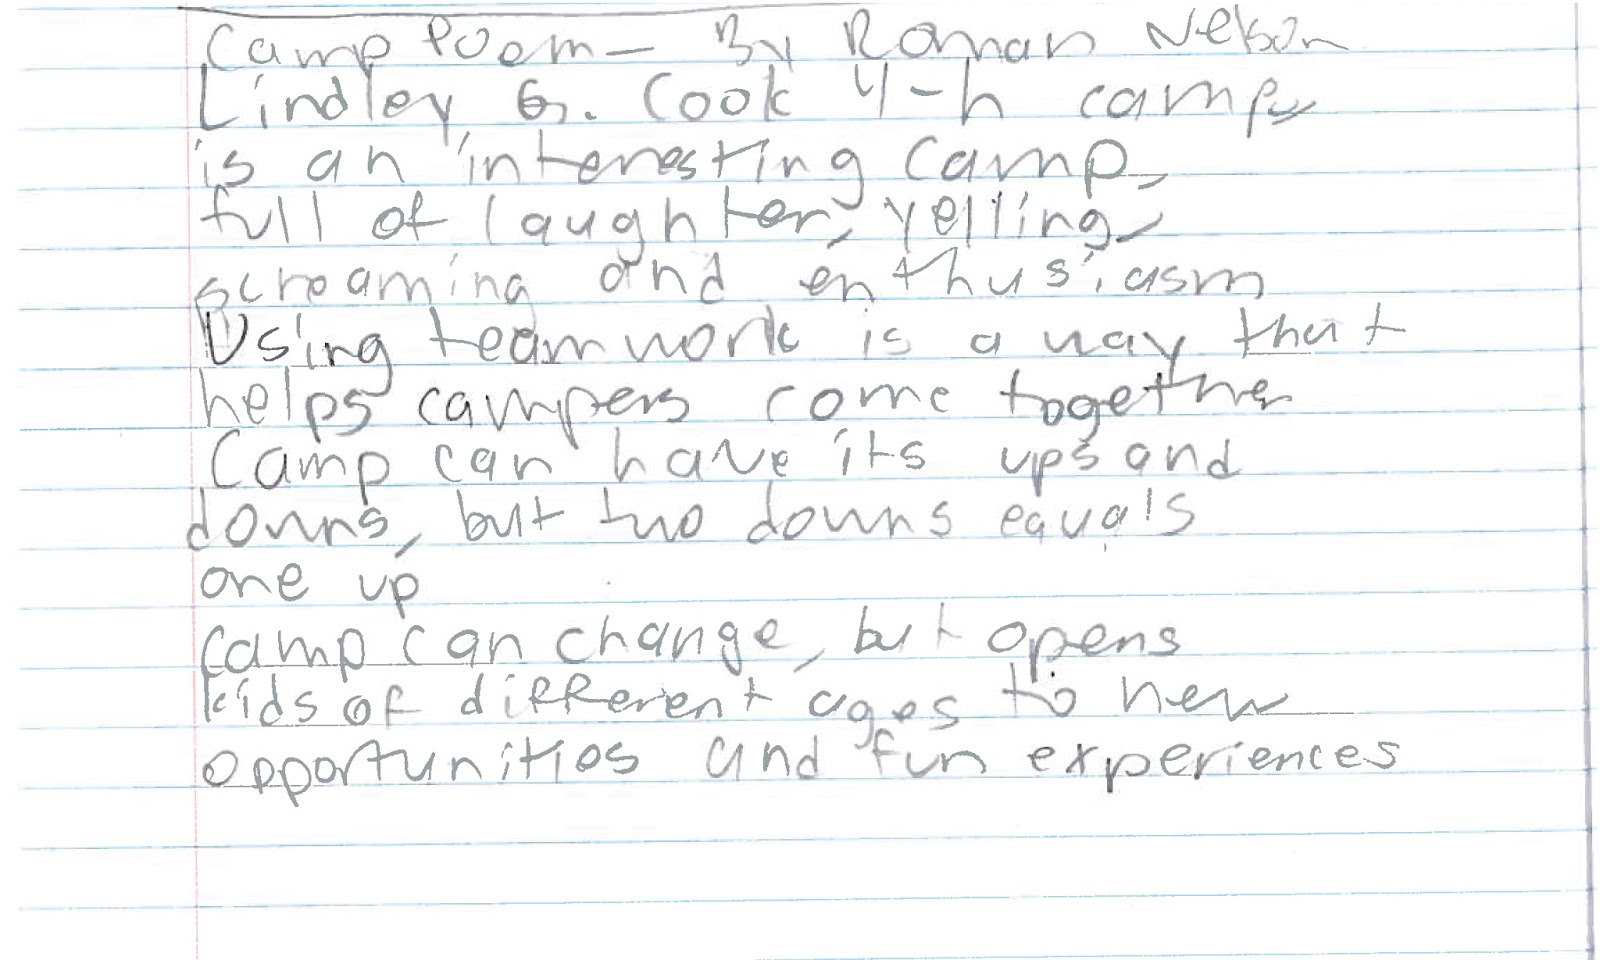 Camp Poem - By Roman Nelson
Lindley G. Cook 4-h camp,
is an interesting camp,
full of laughter, yelling,
screaming and enthusiasm
Using teamwork is a way that
helps campers come together
Camp can have its ups and
downs, but two downs equals
one up
camp can change, but opens
kids of different ages to new
opportunities and fun experiences